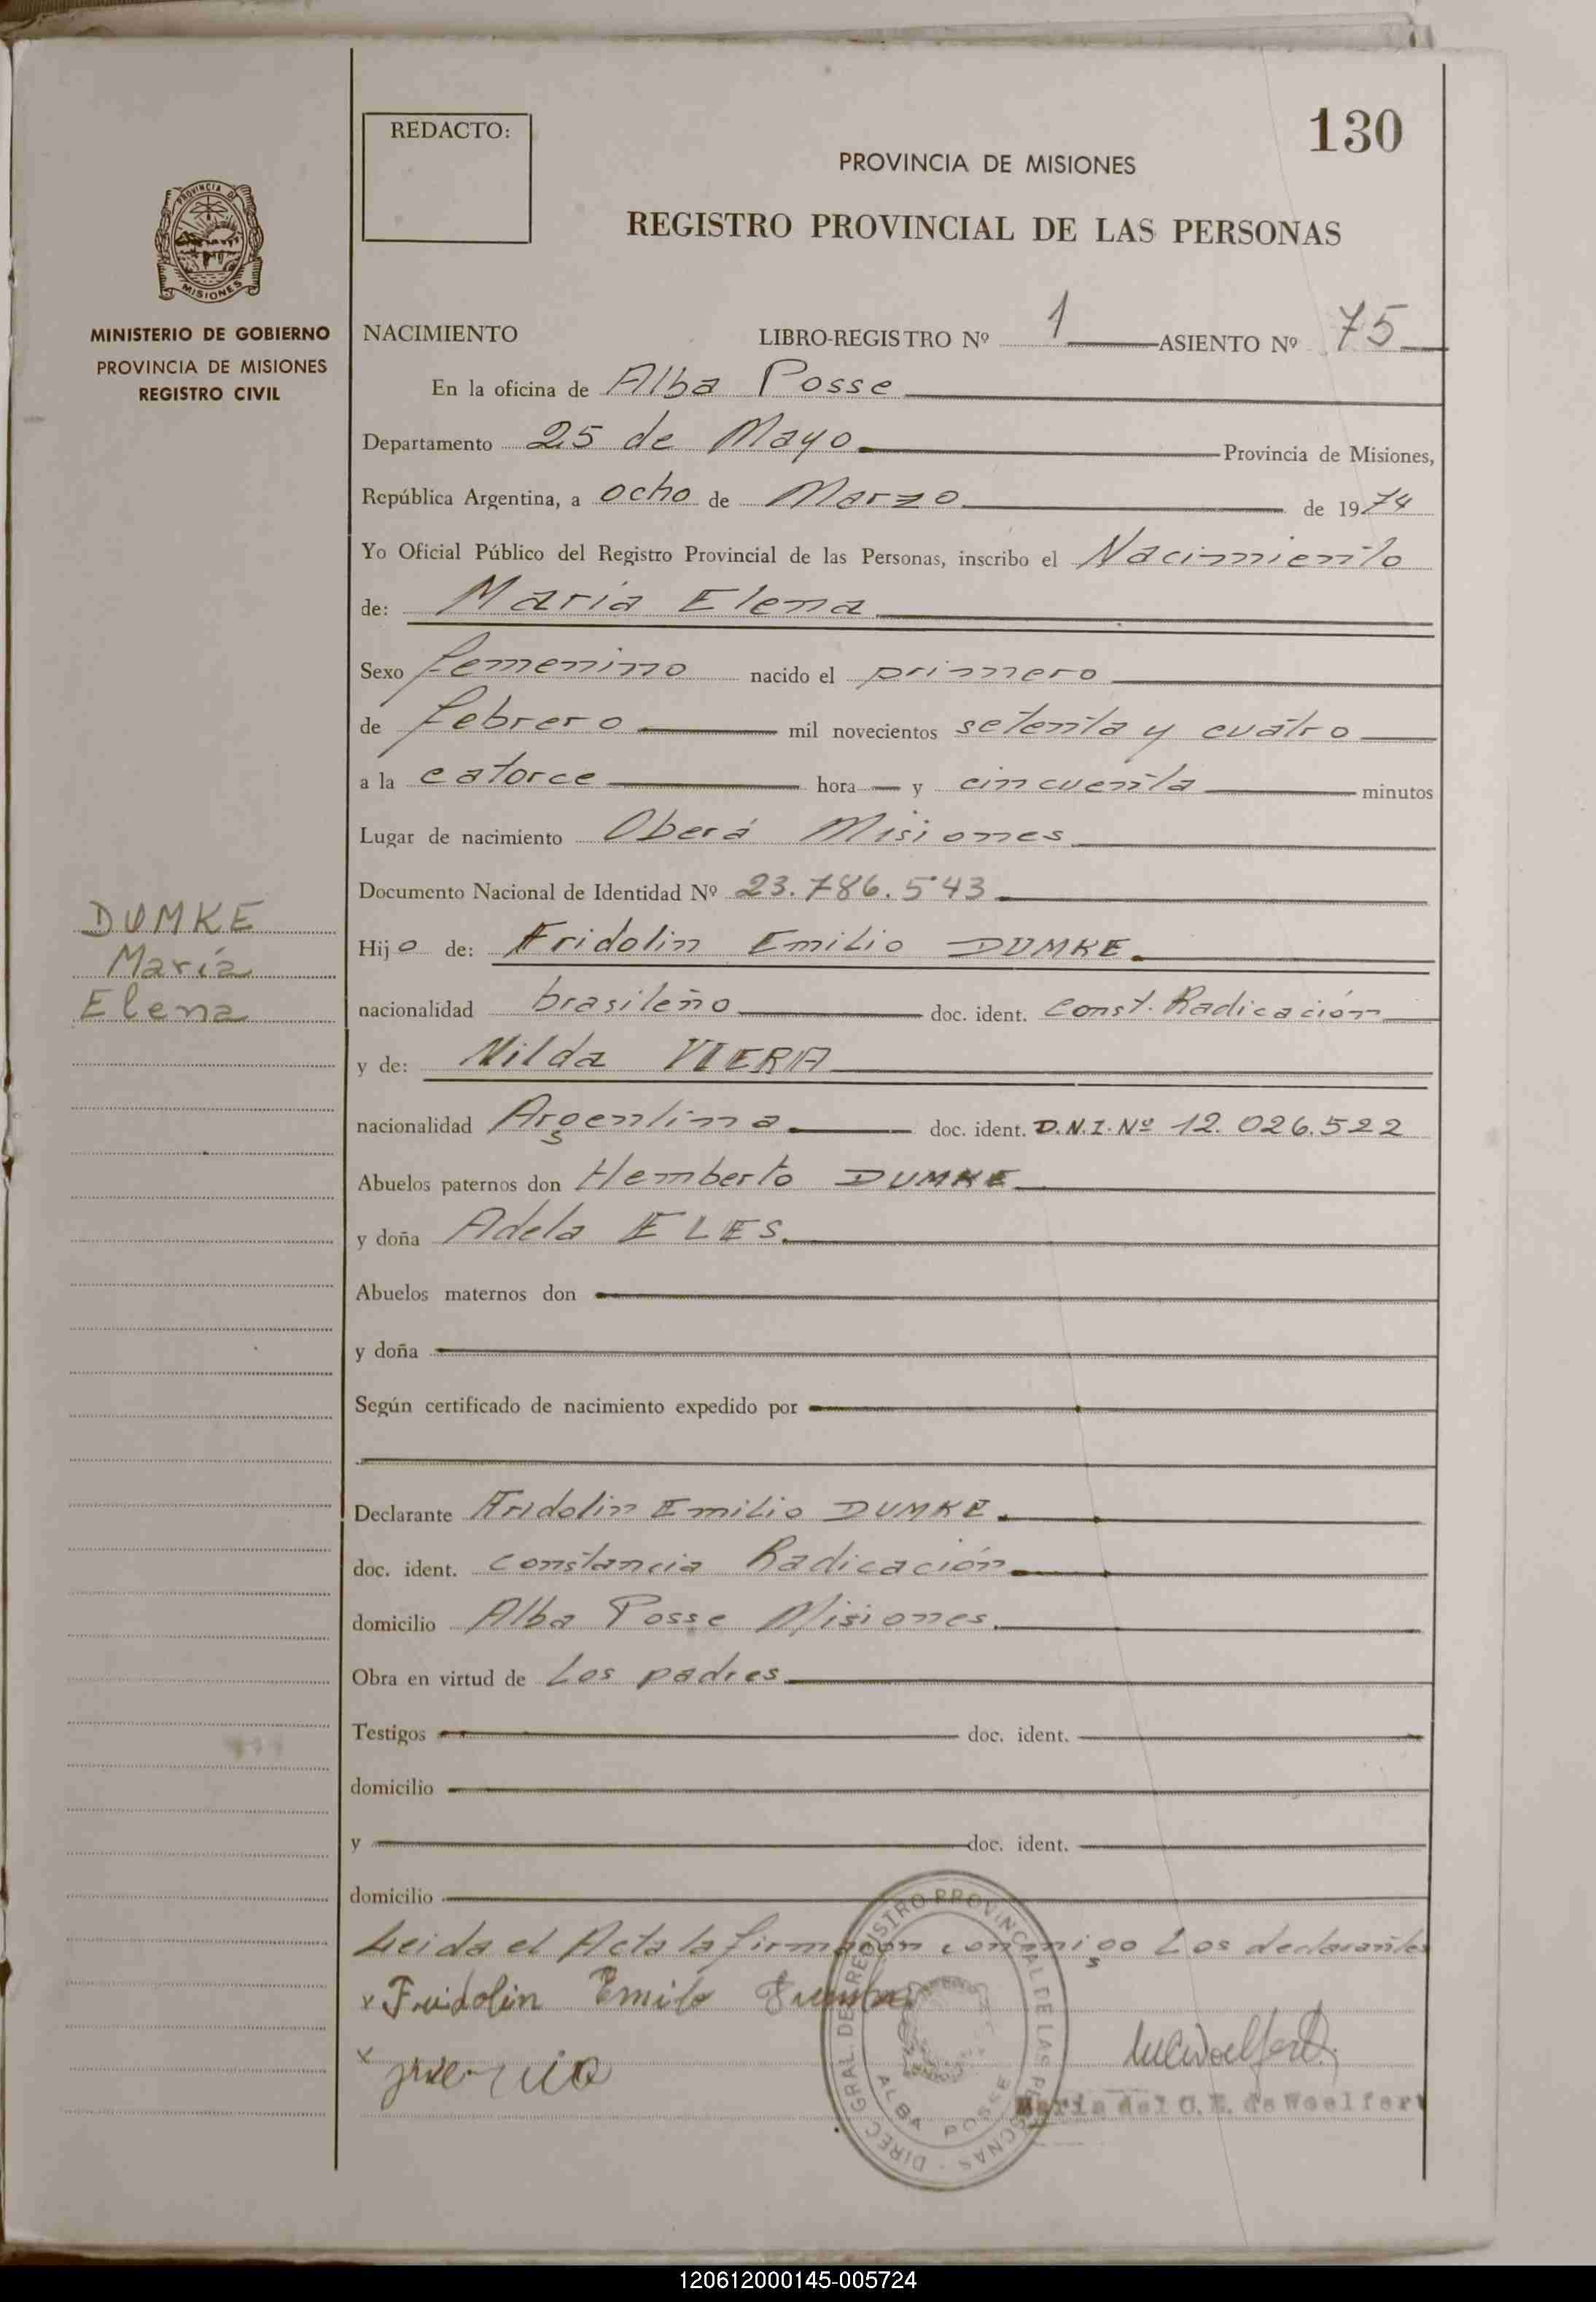 130
REDACTO:
PROVINCIA DE MISIONES
REGISTRO PROVINCIAL DE LAS PERSONAS
PROVINCIA DE
MISIONES
MINISTERIO DE GOBIERNO
PROVINCIA DE MISIONES
REGISTRO CIVIL
NACIMIENTO LIBRO-REGISTRO Nº 1 ASIENTO Nº 75
En la oficina de Alba Posse
Departamento 25 de Mayo Provincia de Misiones,
República Argentina, a ocho de Marzo de 1974
Yo Oficial Público del Registro Provincial de las Personas, inscribo el Nacimiento
de: María Elena
Sexo femenino nacido el primero
de febrero mil novecientos setenta y cuatro
a la catorce hora y cincuenta minutos
Lugar de nacimiento Oberá Misiones
Documento Nacional de Identidad Nº 23.786.543
DUMKE
María
Elena
Hijo de: Fridolin Emilio DUMKE.
nacionalidad brasileño doc. ident. Const. Radicación
y de: Nilda VIERA
nacionalidad Argentina doc. ident. D.N.I. Nº 12.026.522
Abuelos paternos don Hemberto DUMKE
y doña Adela ELES.
Abuelos maternos don
y doña
Según certificado de nacimiento expedido por
Declarante Fridolin Emilio DUMKE.
doc. ident. constancia Radicación
domicilio Alba Posse Misiones.
Obra en virtud de Los padres
Testigos doc. ident.
domicilio
y doc. ident.
domicilio
Leida el Acta la firmaron conmigo Los declarantes
x Fridolin Emilo
x
DIREC. GRAL. DE REGISTRO PROVINCIAL DE LAS PERSONAS
ALBA POSSE
María del C. E. de Woelfert
120612000145-005724